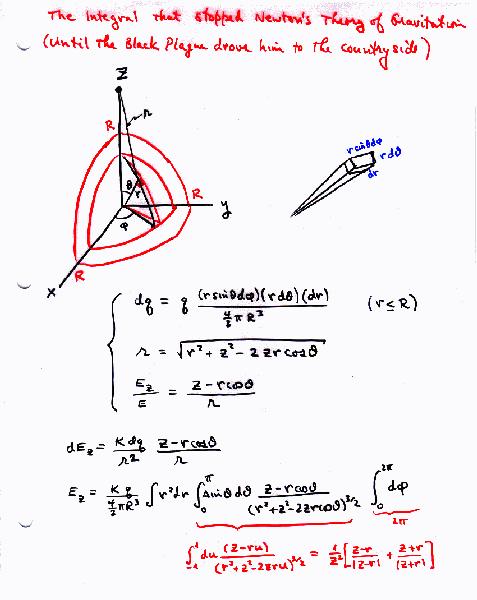 The Integral that stopped Newton's Theory of Gravitation
(Until the Black Plague drove him to the countryside)
Z
r
R
r sinθdφ
r dθ
dr
θ
r
R
y
φ
R
x
dq = q (r sinθdφ)(r dθ)(dr) / (4/3 π R³) (r ≤ R)
r = √(r² + z² - 2 z r cosθ)
E_z / E = (z - r cosθ) / r
dE_z = (K dq / r²) (z - r cosθ) / r
E_z = (K q / (4/3 π R³)) ∫ r² dr ∫₀^π sinθ dθ (z - r cosθ) / (r² + z² - 2zr cosθ)^(3/2) ∫₀^2π dφ
2π
∫₋₁^1 du (z - ru) / (r² + z² - 2zru)^(3/2) = 1/z² [ (z-r)/|z-r| + (z+r)/|z+r| ]